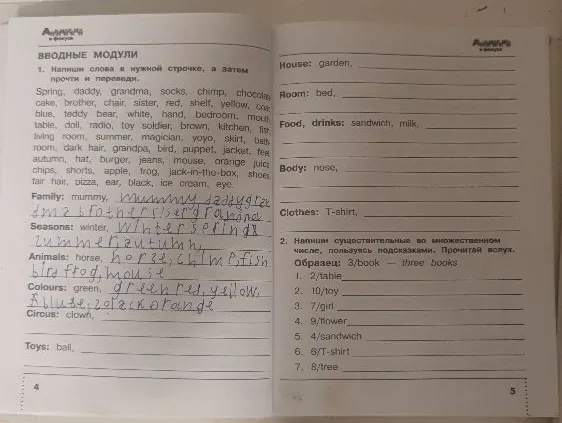 Английский
в фокусе
ВВОДНЫЕ МОДУЛИ
1. Напиши слова в нужной строчке, а затем
прочти и переведи.
Spring, daddy, grandma, socks, chimp, chocolate
cake, brother, chair, sister, red, shelf, yellow, coat,
blue, teddy bear, white, hand, bedroom, mouth,
table, doll, radio, toy soldier, brown, kitchen, fish,
living room, summer, magician, yoyo, skirt, bath
room, dark hair, grandpa, bird, puppet, jacket, feet,
autumn, hat, burger, jeans, mouse, orange juice,
chips, shorts, apple, frog, jack-in-the-box, shoes,
fair hair, pizza, ear, black, ice cream, eye.
Family: mummy, mummy, daddy gran
dma brother sister grandpa
Seasons: winter, winter spring
summer, autumn,
Animals: horse, horse, chimp, fish
bird frog, mouse
Colours: green, green red, yellow,
blue, black orange
Circus: clown,
Toys: ball,
4
Английский
в фокусе
House: garden,
Room: bed,
Food, drinks: sandwich, milk,
Body: nose,
Clothes: T-shirt,
2. Напиши существительные во множественном
числе, пользуясь подсказками. Прочитай вслух.
Образец: 3/book — three books
1. 2/table
2. 10/toy
3. 7/girl
4. 9/flower
5. 4/sandwich
6. 6/T-shirt
7. 8/tree
5